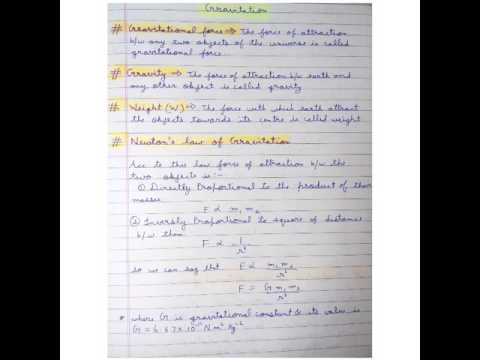 Gravitation
# Gravitational force → The force of attraction
b/w any two objects of the universe is called
gravitational force.
# Gravity → The force of attraction b/w earth and
any other object is called gravity
# Weight (W) → The force with which earth attract
the objects towards its centre is called weight
# Newton's law of Gravitation
Acc to this law force of attraction b/w the
two objects is:-
① Directly Proportional to the product of their
masses
F ∝ m₁ m₂
② Inversly Proportional to square of distance
b/w them
F ∝ 1/r²
so we can say that F ∝ m₁ m₂/r²
F = G m₁ m₂/r²
* where G is gravitational constant & its value is
G = 6.67 × 10⁻¹¹ N m² Kg⁻²